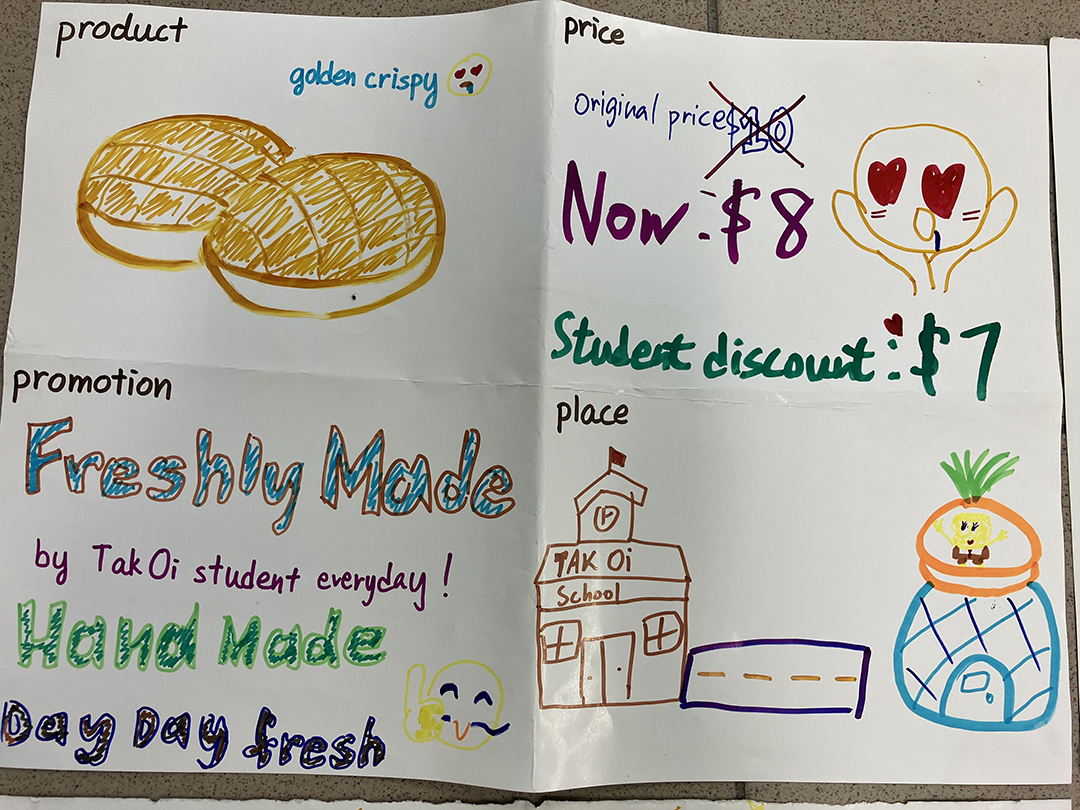 product
golden crispy
price
Original price $10
Now: $8
Student discount: $7
promotion
Freshly Made
by Tak Oi student everyday!
Hand Made
Day Day fresh
place
TAK Oi
School